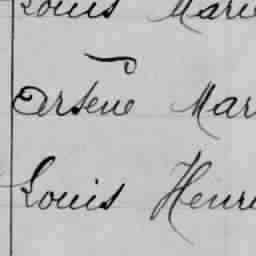 Louis Marie
Arsène Mar
Louis Henri